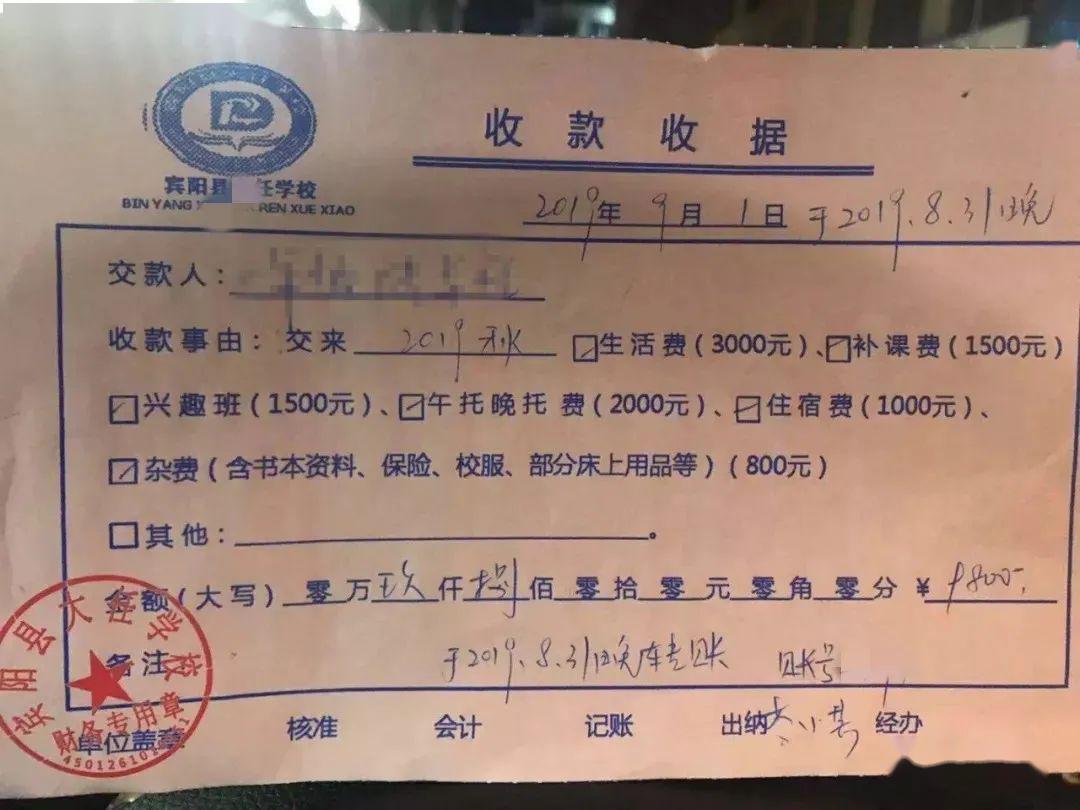 收款收据
宾阳县 任学校
BIN YANG REN XUE XIAO
2019年9月1日 于2019.8.31晚
交款人：
收款事由：交来 2019秋 生活费（3000元）、补课费（1500元）
兴趣班（1500元）、午托晚托费（2000元）、住宿费（1000元）、
杂费（含书本资料、保险、校服、部分床上用品等）（800元）
其他： 。
金额（大写）零万玖仟捌佰零拾零元零角零分 ¥ 9800
备注： 于2019.8.31晚转 账 账号
单位盖章 核准 会计 记账 出纳 小 经办
宾阳县大任学校
财务专用章